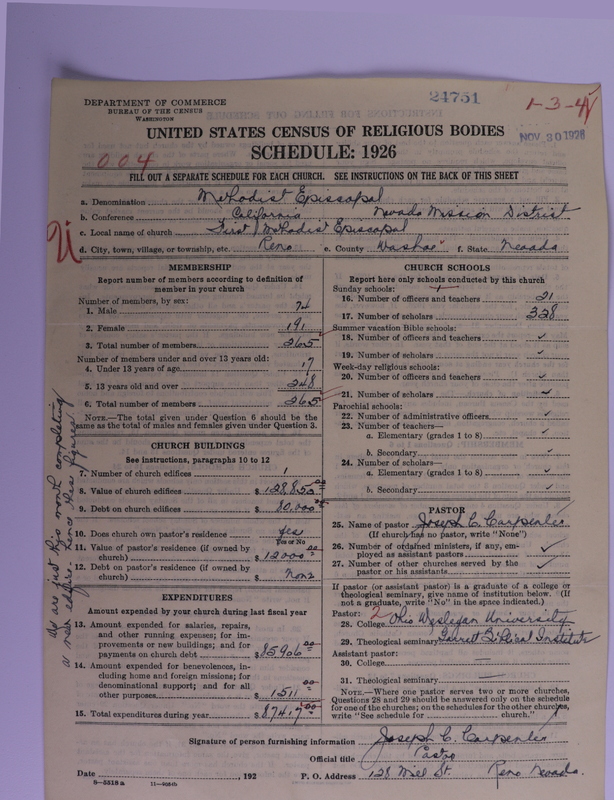 24751
1-3-4
DEPARTMENT OF COMMERCE
BUREAU OF THE CENSUS
WASHINGTON
NOV 30 1926
UNITED STATES CENSUS OF RELIGIOUS BODIES
SCHEDULE: 1926
004
FILL OUT A SEPARATE SCHEDULE FOR EACH CHURCH. SEE INSTRUCTIONS ON THE BACK OF THIS SHEET
a. Denomination Methodist Episcopal
b. Conference California Nevada Mission District
c. Local name of church First Methodist Episcopal
d. City, town, village, or township, etc. Reno e. County Washoe f. State Nevada
MEMBERSHIP
Report number of members according to definition of
member in your church
Number of members, by sex:
1. Male 74
2. Female 191
3. Total number of members 265
Number of members under and over 13 years old:
4. Under 13 years of age 17
5. 13 years old and over 248
6. Total number of members 265
NOTE.—The total given under Question 6 should be the
same as the total of males and females given under Question 3.
CHURCH BUILDINGS
See instructions, paragraphs 10 to 12
7. Number of church edifices 1
8. Value of church edifices $128,850.00
9. Debt on church edifices $80,000.00
10. Does church own pastor's residence yes
Yes or No
11. Value of pastor's residence (if owned by
church) $12000.00
12. Debt on pastor's residence (if owned by
church) $ None
EXPENDITURES
Amount expended by your church during last fiscal year
13. Amount expended for salaries, repairs,
and other running expenses; for im-
provements or new buildings; and for
payments on church debt $85906.00
14. Amount expended for benevolences, in-
cluding home and foreign missions; for
denominational support; and for all
other purposes $1511.00
15. Total expenditures during year $87417.00
are just this month completing
a new edifice hence these figures.
CHURCH SCHOOLS
Report here only schools conducted by this church
Sunday schools:
16. Number of officers and teachers 21
17. Number of scholars 328
Summer vacation Bible schools:
18. Number of officers and teachers ✓
19. Number of scholars ✓
Week-day religious schools:
20. Number of officers and teachers ✓
21. Number of scholars ✓
Parochial schools:
22. Number of administrative officers ✓
23. Number of teachers—
a. Elementary (grades 1 to 8) ✓
b. Secondary ✓
24. Number of scholars—
a. Elementary (grades 1 to 8) ✓
b. Secondary ✓
PASTOR
25. Name of pastor Joseph C. Carpenter
(If church has no pastor, write "None")
26. Number of ordained ministers, if any, em-
ployed as assistant pastors ✓
27. Number of other churches served by the
pastor or his assistants ✓
If pastor (or assistant pastor) is a graduate of a college or
theological seminary, give name of institution below. (If
not a graduate, write "No" in the space indicated.)
Pastor:
28. College Ohio Wesleyan University
29. Theological seminary Garrett Biblical Institute
Assistant pastor:
30. College —
31. Theological seminary —
NOTE.—Where one pastor serves two or more churches,
Questions 28 and 29 should be answered only on the schedule
for one of the churches; on the schedules for the other churches,
write "See schedule for church."
Signature of person furnishing information Joseph C. Carpenter
Official title Pastor
Date , 192 P. O. Address 128 Mill St. Reno Nevada.
8—5318 a 11—9364b